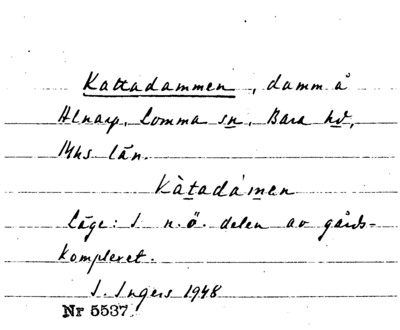 Kattadammen, damm å
Alnarp, Lomma sn, Bara hd,
Mhs län.
Kàtadámen
Läge: I n.ö. delen av gårds-
komplexet.
I. Ingers 1948
Nr 5537